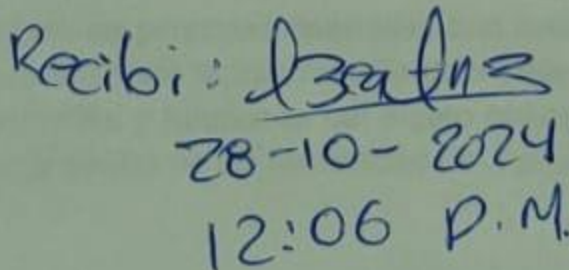 Recibi: Beatriz
28-10-2024
12:06 P.M.